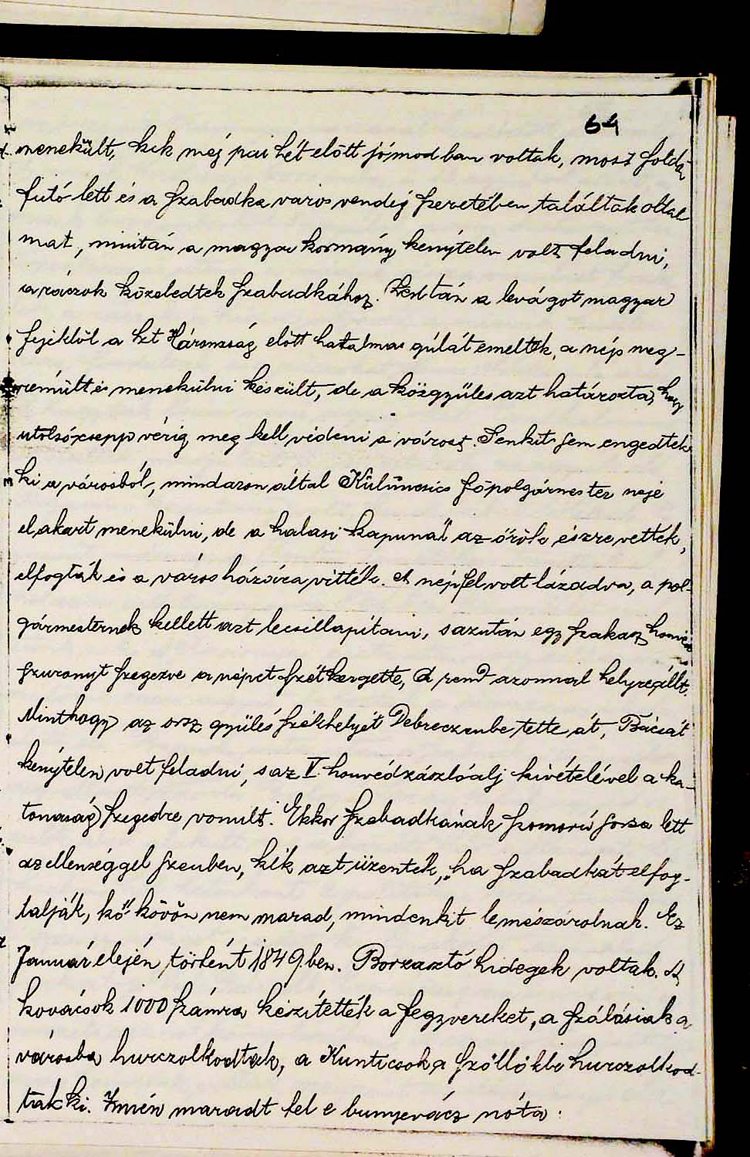 64
menekült, kik még pár hét előtt jómódban voltak, most földön
futó lett és a Szabadka város vendég szeretében találtak oltal
mat, miután a magyar kormány kénytelen volt feladni,
a ráczok közeledtek Szabadkához. Zentán a levágot magyar
fejekből a Szt Háromság előtt hatalmas gúlát emeltek, a nép meg-
rémült és menekülni készült, de a közgyűlés azt határozta, hogy
utolsó csepp vérig meg kell védeni a várost. Senkit sem engedtek
ki a városból, mindazon által főpolgármester neje
el akart menekülni, de a halasi kapunál az őrök észre vették,
elfogták és a város házára vitték. A nép fel volt lázadva, a pol-
gármesternek kellett azt lecsillapítani, s azután egy szakasz honvéd
szuronyt szegezve a népet szét kergette, a rend azonnal helyreállt.
Minthogy az orsz gyülés székhelyét Debreczenbe tette át, Bácsát
kénytelen volt feladni, s az V. honvédzászlóalj kivételével a ka-
tonaság Szegedre vonult. Ekkor Szabadkának szomorú sorsa lett
az ellenséggel szemben, kik azt üzentek, „ha Szabadkát elfog-
lalják, kő kövön nem marad, mindenkit lemészárolnak. Ez
Január elején történt 1849.ben. Borzasztó hidegek voltak. A
kovácsok 1000 számra készítették a fegyvereket, a szálásiak a
városba hurczolkodtak, a Kunticsok a szőllőkbe hurczolkod-
tak ki. Innen maradt fel e bunyevácz nóta: